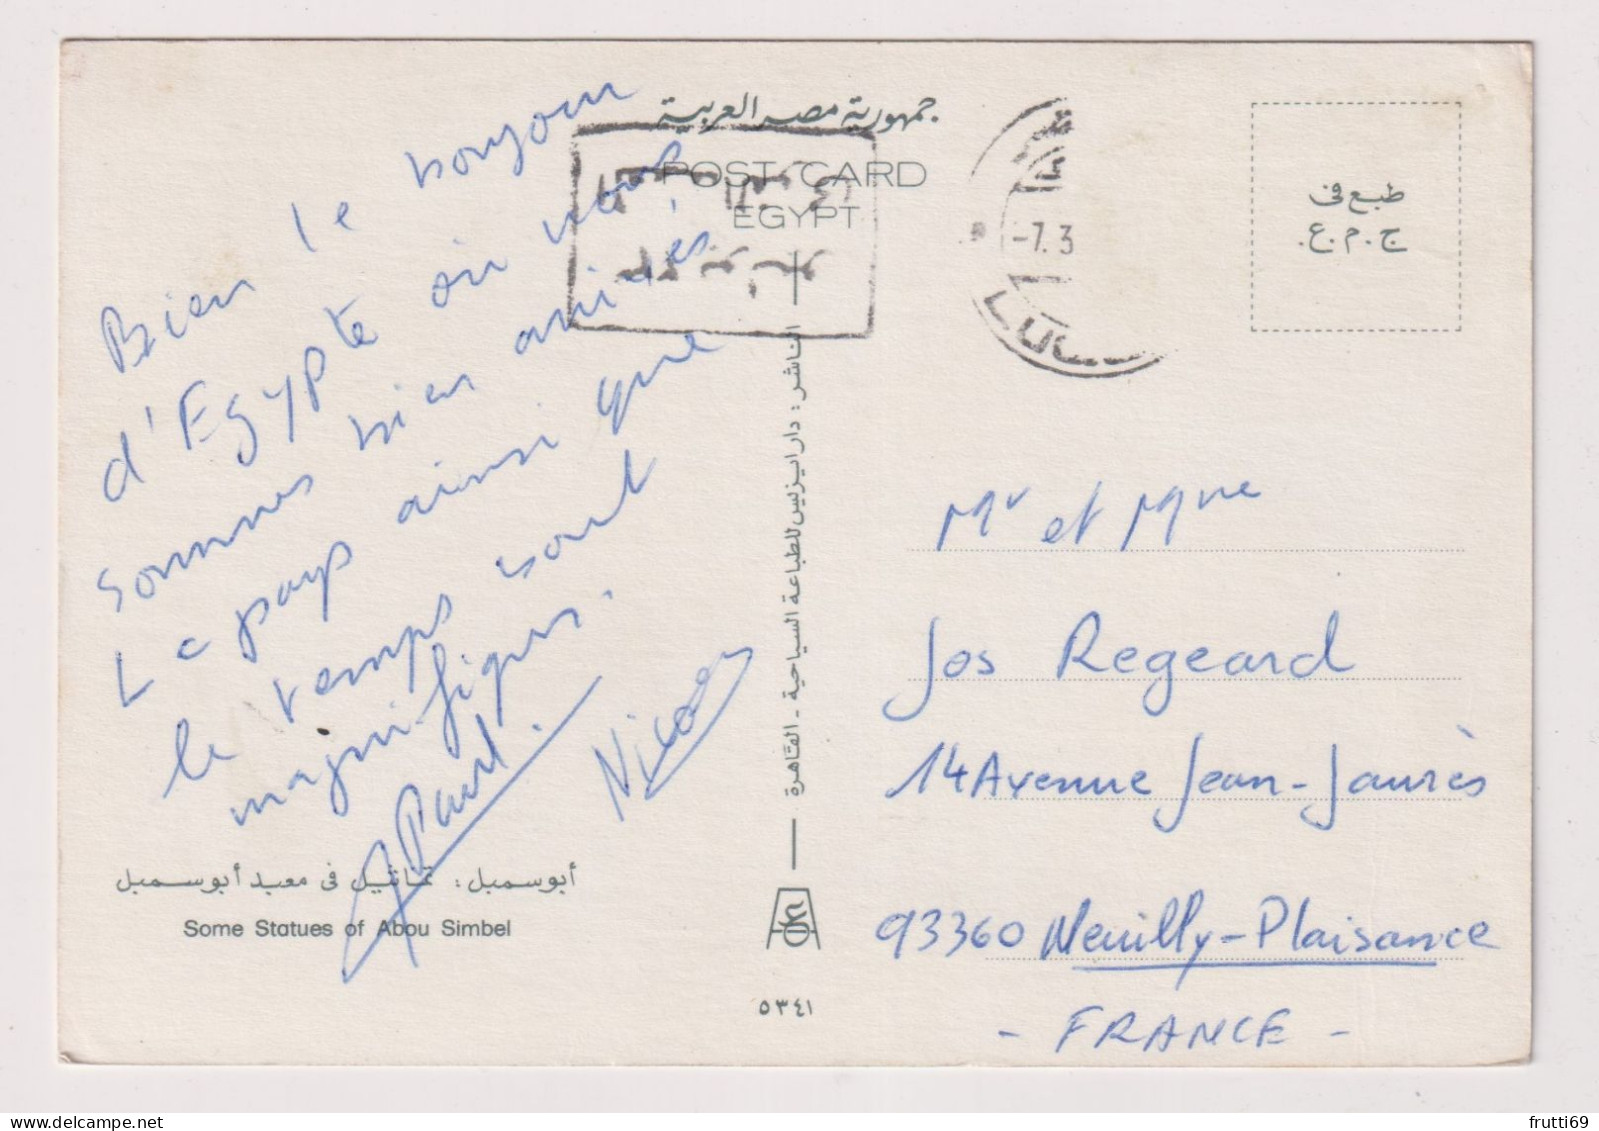 جمهورية مصر العربية
POST CARD
EGYPT
-7.3
طبع في
ج.م.ع.
Bien le bonjour
d'Egypte où nous
sommes bien arrivés
Le pays ainsi que
le temps sont
magnifiques.
Paul.
Nicole
أبوسمبل : تماثيل فى معبد أبوسمبل
Some Statues of Abou Simbel
الناشر : دار ايزيس للطباعة السياحية - القاهرة
٥٣٤١
Mr et Mme
Jos Regeard
14 Avenue Jean-Jaurès
93360 Neuilly-Plaisance
- FRANCE -
frutti69